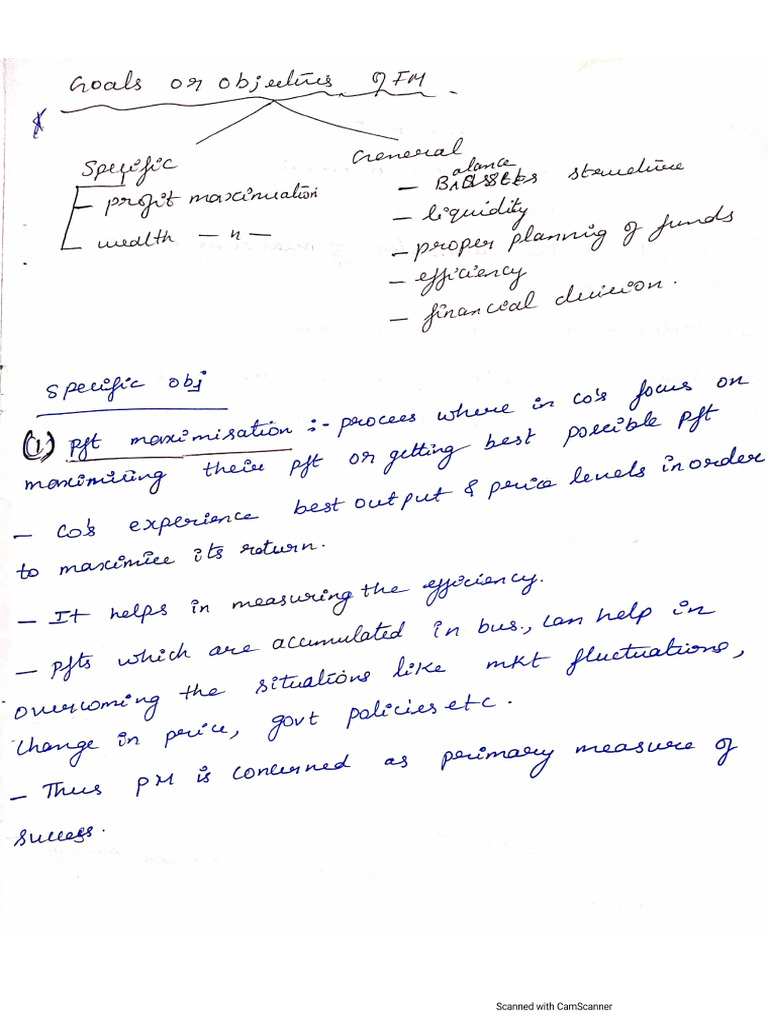 Goals or objectives of FM
Specific
- profit maximisation
- wealth — " —
General
- Balanced assets structure
- liquidity
- proper planning of funds
- efficiency
- financial decision.
Specific obj
(1) pft maximisation :- process where in co's focus on
maximizing their pft or getting best possible pft
- Co's experience best output & price levels in order
to maximize its return.
- It helps in measuring the efficiency.
- Pfts which are accumulated in bus., can help in
overcoming the situations like mkt fluctuations,
change in price, govt policies etc.
- Thus PM is concerned as primary measure of
success.
Scanned with CamScanner